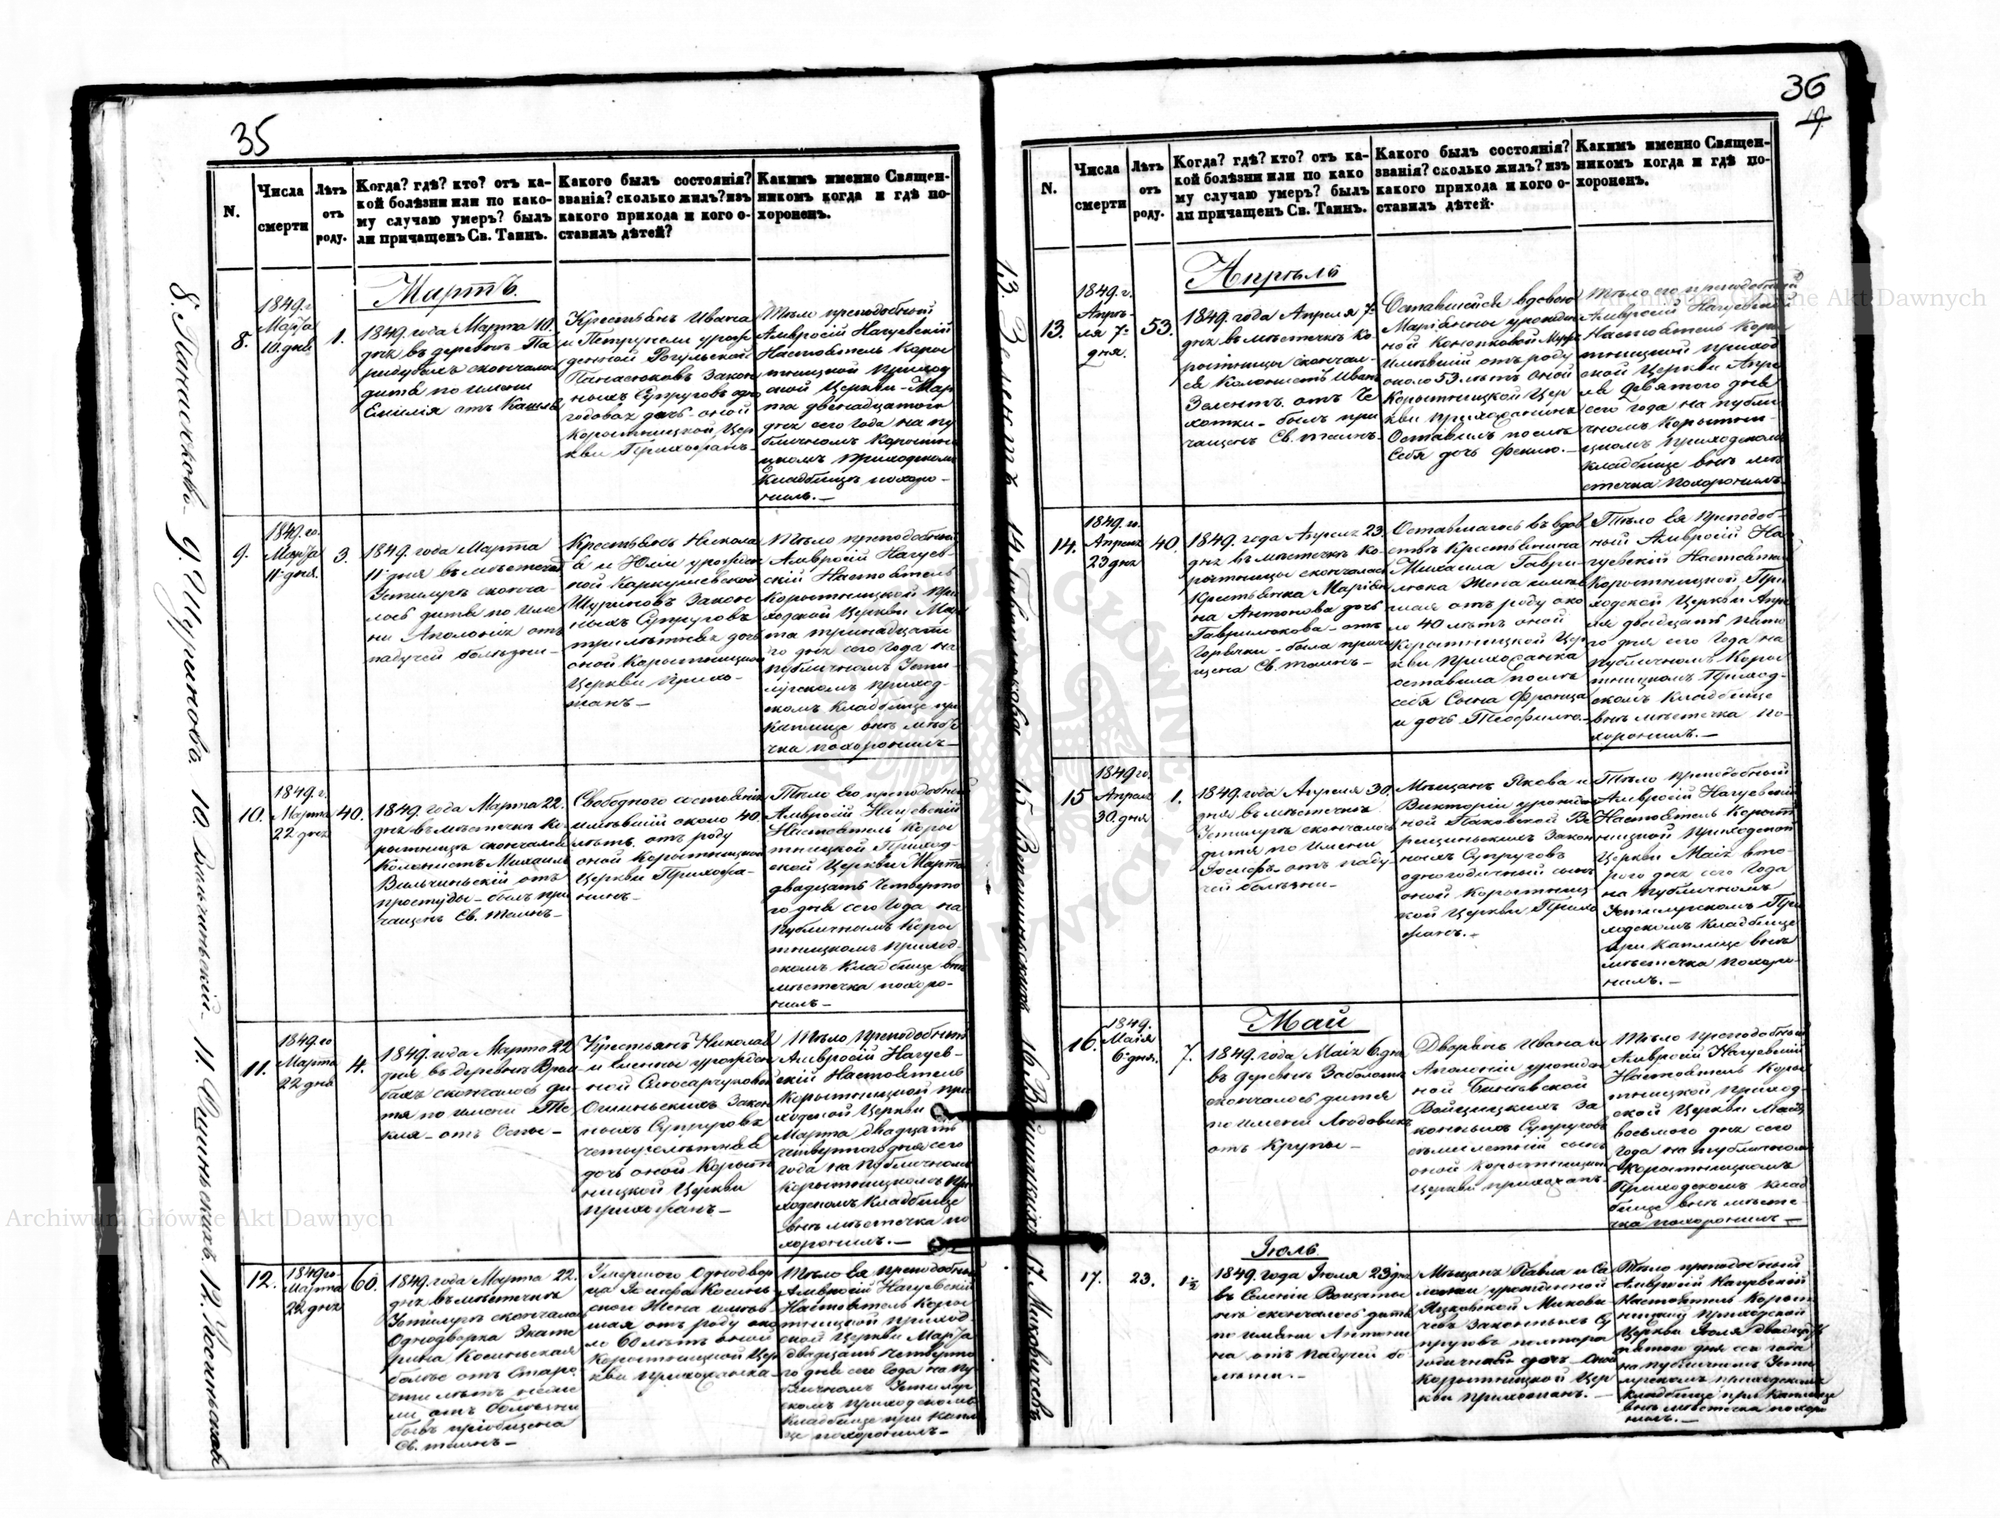 35
N.
Числа
смерти
Лѣтъ
отъ
роду.
Когда? гдѣ? кто? отъ ка-
кой болѣзни или по како-
му случаю умеръ? былъ
ли причащенъ Св. Таинъ.
Какого былъ состоянія?
званія? сколько жилъ? изъ
какого прихода и кого о-
ставилъ дѣтей?
Какимъ именно Священ-
никомъ когда и гдѣ по-
хороненъ.
Мартъ.
8.
1849 г.
Марта
10. дня
1.
1849. года Марта 10.
дня въ деревнѣ
скончалось
дитя по имени
Емилія отъ Кашля
Крестьянъ Ивана
и Петрунели урож
денной
Панасюковъ Закон
ныхъ Супруговъ одно
годовая дочь оной
Коростницкой Цер
кви Прихожанъ
Тѣло преподобный
Амвросій Нагуевскій
Настоятель Корос
тницкой Приход
ской Церкви Мар
та двенадцатого
дня сего Года на пу
бличномъ Коростни
цкомъ приходскомъ
Кладбищѣ похоро-
нилъ.—
9.
1849. го.
Марта
11. дня.
3.
1849. года Марта
11 дня въ мѣстечкѣ
Устилугѣ сконча-
лось дитя по име
ни Аполонія отъ
падучей болѣзни-
Крестьянъ Никола
я и Юлии урожден
ной
Шуриновъ Закон
ныхъ Супруговъ
трилѣтняя дочь
оной Коростницкой
Церкви Прихо-
жанъ —
Тѣло преподобный
Амвросій Нагуев-
скій Настоятель
Коростницкой При
ходской Церкви Мар
та тринадцато-
го дня сего Года на
публичномъ Усти-
лугскомъ приход-
скомъ Кладбище при
Каплице внѣ мѣсте
чка похоронилъ—
10.
1849. г.
Марта
22 дня
40.
1849. года Марта 22.
дня въ мѣстечкѣ Ко
ростницѣ скончался
Колонистъ Михаилъ
Вильчиньскій отъ
простуды — былъ при
чащенъ Св. таинъ —
Свободного состоянія
имѣвшій около 40.
лѣтъ отъ роду
оной Коростницкой
Церкви Прихожа-
нинъ.
Тѣло Его преподобный
Амвросій Нагуевскій
Настоятель Корос
тницкой Приход-
ской Церкви Марта
двадцать четверто
го дня сего Года на
Публичномъ Корос
тницкомъ приход-
скомъ Кладбище внѣ
мѣстечка похоро-
нилъ—
11.
1849. го
Марта
22 дня
4.
1849 года Марта 22
дня въ деревнѣ
скончалось ди-
тя по имени Те
кля — отъ Оспы —
Крестьянъ Николая
и Елены урожден
ной
Ошиньскихъ Закон
ныхъ Супруговъ
четырелѣтняя
дочь оной Корост
ницкой Церкви
прихожанъ—
Тѣло Преподобный
Амвросій Нагуев-
скій Настоятель
Коростницкой при
ходской Церкви
Марта двадцать
четвертого дня сего
года на Публичномъ
Коростницкомъ при
ходскомъ Кладбище
внѣ мѣстечка по
хоронилъ.—
12.
1849 го.
Марта
22 дня
60.
1849. года Марта 22.
дня въ мѣстечкѣ
Устилугѣ скончалась
Однодворка Екате
рина Косиньская
болѣе отъ Старо-
сти лѣтъ неже
ли отъ болѣзни
бывъ пріобщена
Св. таинъ —
Умершого Однодвор
ца Іосифа Косинь
ского Жена имѣв
шая отъ роду око
ло 60 лѣтъ оной
Коростницкой Цер
кви прихожанка
Тѣло Ея преподобный
Амвросій Нагуевскій
Настоятель Корос
тницкой приход-
ской Церкви Марта
двадцать четверто
го дня сего Года на Пу
бличномъ Устилуг
скомъ приходскомъ
Кладбище при капли
це похоронилъ—
8. Панасюковъ. 9. Шуриновъ. 10. Вильчиньскій. 11. Ошиньскихъ. 12. Косиньская
36
19.
N.
Числа
смерти
Лѣтъ
отъ
роду.
Когда? гдѣ? кто? отъ ка-
кой болѣзни или по како
му случаю умеръ? былъ
ли причащенъ Св. Таинъ.
Какого былъ состоянія?
званія? сколько жилъ? изъ
какого прихода и кого о-
ставилъ дѣтей.
Какимъ именно Священ-
никомъ когда и гдѣ по-
хороненъ.
Апрѣль
13.
1849. г.
Апрѣ-
ля 7-
дня.
53.
1849. года Апреля 7-
дня въ мѣстечкѣ Ко
ростницы скончал-
ся Колонистъ Иванъ
Зелентъ. отъ Че
хотки — былъ при
чащенъ Св. таинъ-
Оставшейся вдовою
Маріанны урожден
ной
Имѣвшій отъ роду
около 53 лѣтъ оной
Коростницкой Цер
кви прихожанинъ
Оставилъ послѣ
Себя дочь Феклю.—
Тѣло его преподобный
Амвросій Нагуевскій
Настоятель Корос
тницкой приход
ской Церкви Апре
ля Девятого дня
сего года на публи
чномъ Коростни-
цкомъ приходскомъ
кладбище внѣ мѣ
стечка похоронилъ
14.
1849. го.
Апреля
23 дня
40.
1849. года Апреля 23.
дня въ мѣстечкѣ Ко
ростницы скончалась
Крестьянка Маріан
на Антонова дочь
Гаврилюкова — отъ
Горячки — была прича
щена Св. таинъ—
Оставшагось въ вдов
ствѣ Крестьянина
Михаила Гаври-
люка Жена имѣв
шая отъ роду око
ло 40 лѣтъ оной
Коростницкой Цер
кви прихожанка
оставила послѣ
себя Сына Франца
и дочь Теофилю.
Тѣло Ея Преподоб-
ный Амвросій На
гуевскій Настоятель
Коростницкой При
ходской Церкви Апре
ля двадцать пято
го дня сего Года на
Публичномъ Корос
тницкомъ Приход-
скомъ Кладбище
внѣ мѣстечка по-
хоронилъ.—
15
1849 го.
Апреля
30. дня
1.
1849. года Апреля 30.
дня въ мѣстечкѣ
Устилугѣ скончалось
дитя по Имени
Іосифъ — отъ паду-
чей болѣзни—
Мѣщанъ Якова и
Викторіи урожден
ной
Закон
ныхъ Супруговъ
одногодичный сынъ
оной Коростниц
кой Церкви Прихо
жанъ.
Тѣло преподобный
Амвросій Нагуевскій
Настоятель Корост
ницкой Приходской
Церкви Маія вто-
рого дня сего Года
на Публичномъ
Устилугскомъ При
ходскомъ Кладбище
при каплице внѣ
мѣстечка похоро-
нилъ.—
Май
16.
1849.
Маія
6. дня.
7.
1849. года Маія 6. дня
въ деревнѣ
скончалось дитя
по имени Людовикъ
отъ Крупы —
Дворянъ Ивана и
Аполоніи урожден
ной
Войцицкихъ За
конныхъ Супруговъ
семилетній сынъ
оной Коростницкой
Церкви прихожанъ
Тѣло преподобный
Амвросій Нагуевскій
Настоятель Корос
тницкой приход-
ской Церкви Маія
восьмого дня сего
года на публичномъ
Коростницкомъ
Приходскомъ Клад
бище внѣ мѣсте-
чка похоронилъ —
Іюль.
17.
23.
1½
1849 года Іюля 23 дня
въ Селеніи
скончалось дитя
по имени Антони
на отъ падучей бо
лѣзни.—
Мѣщанъ Павла и Са
ломеи урожденной
Язковской Микови
чевъ Законныхъ Су
пруговъ полтора
годичная дочь оной
Коростницкой Цер
кви прихожанъ.—
Тѣло преподобный
Амвросій Нагуевскій
Настоятель Корост
ницкой приходской
Церкви Іюля двадцать
пятого дня сего года
на публичномъ Усти
лугскомъ приходскомъ
кладбище при каплице
внѣ мѣстечка похоро
нилъ.—
13. Зелентъ 14. Гаврилюкова 16. Войцицкихъ 17. Миковичевъ
Archiwum Główne Akt Dawnych
Archiwum Główne Akt Dawnych
ARCHIWUM GŁÓWNE AKT DAWNYCH